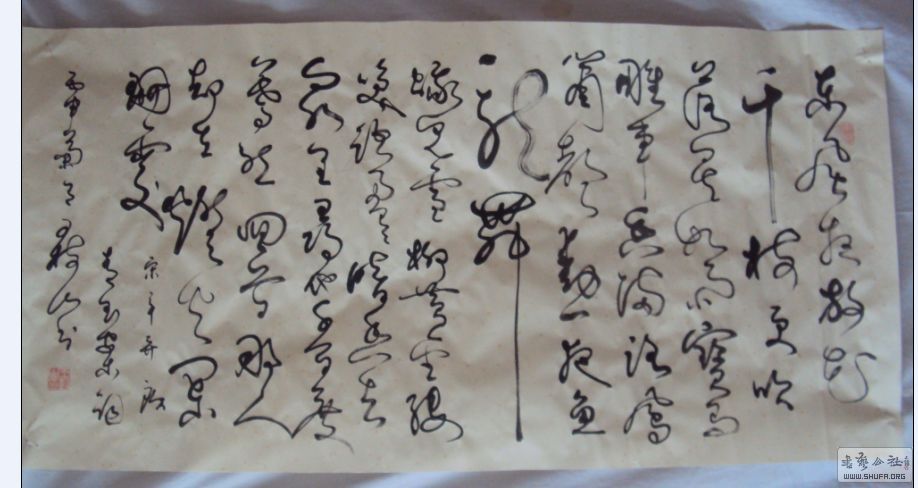 东风夜放花
千枝更吹
落星如雨宝马
雕车香满路凤
箫声动一夜鱼
龙舞
蛾儿雪柳黄金缕
笑语盈盈暗香去
众里寻他千百度
蓦然回首那人
却在灯火阑
珊处
宋辛弃疾
青玉案词
菊月
书
书艺公社
WWW.SHUFA.ORG